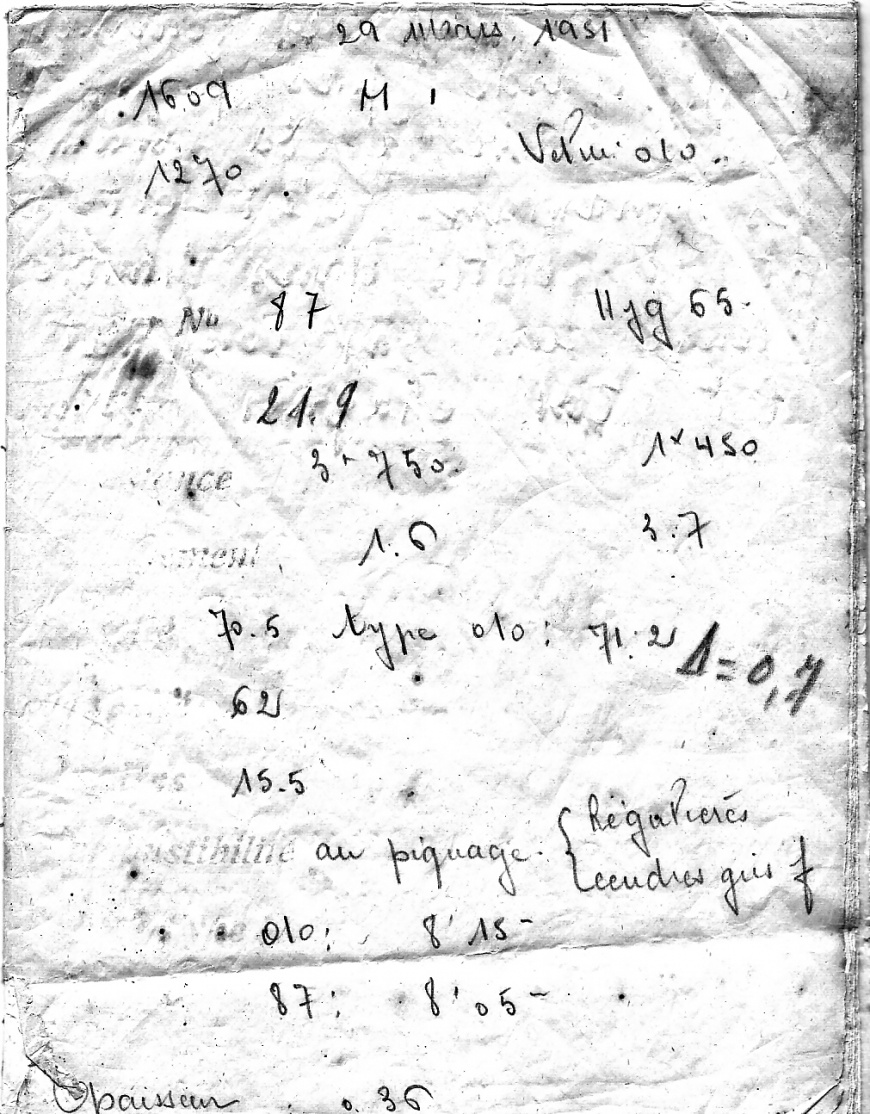 29 Mars. 1951
1609 M 1
1270 010.
No 87 Hyg 65-
21.9
3 x 750. 1 x 450
1.6 3.7
70.5 type 010: 71.2 Δ=0,7
62
15.5
au piquage. { Régatières
{ cendres gris f
010: 8' 15-
87: 8' 05-
Epaisseur 0.36